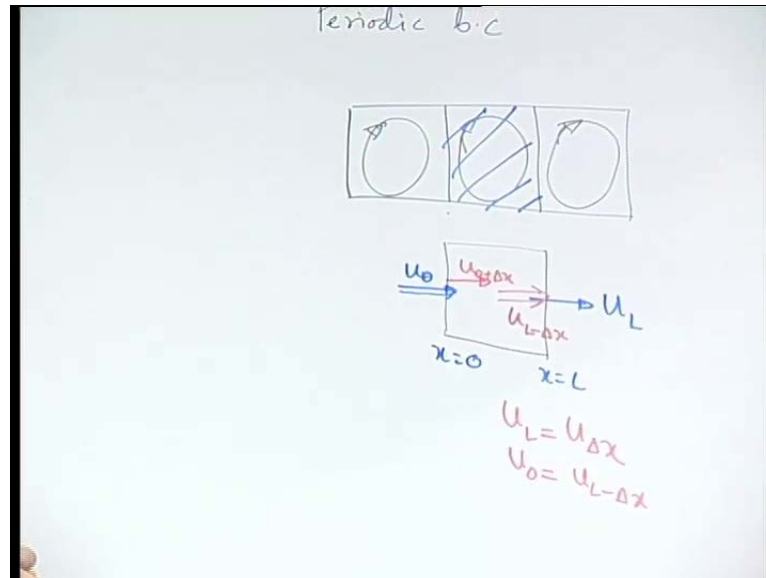 Periodic b.c
U₀ U₀₊Δx
U_L-Δx U_L
x=0 x=L
U_L = U_Δx
U₀ = U_L-Δx